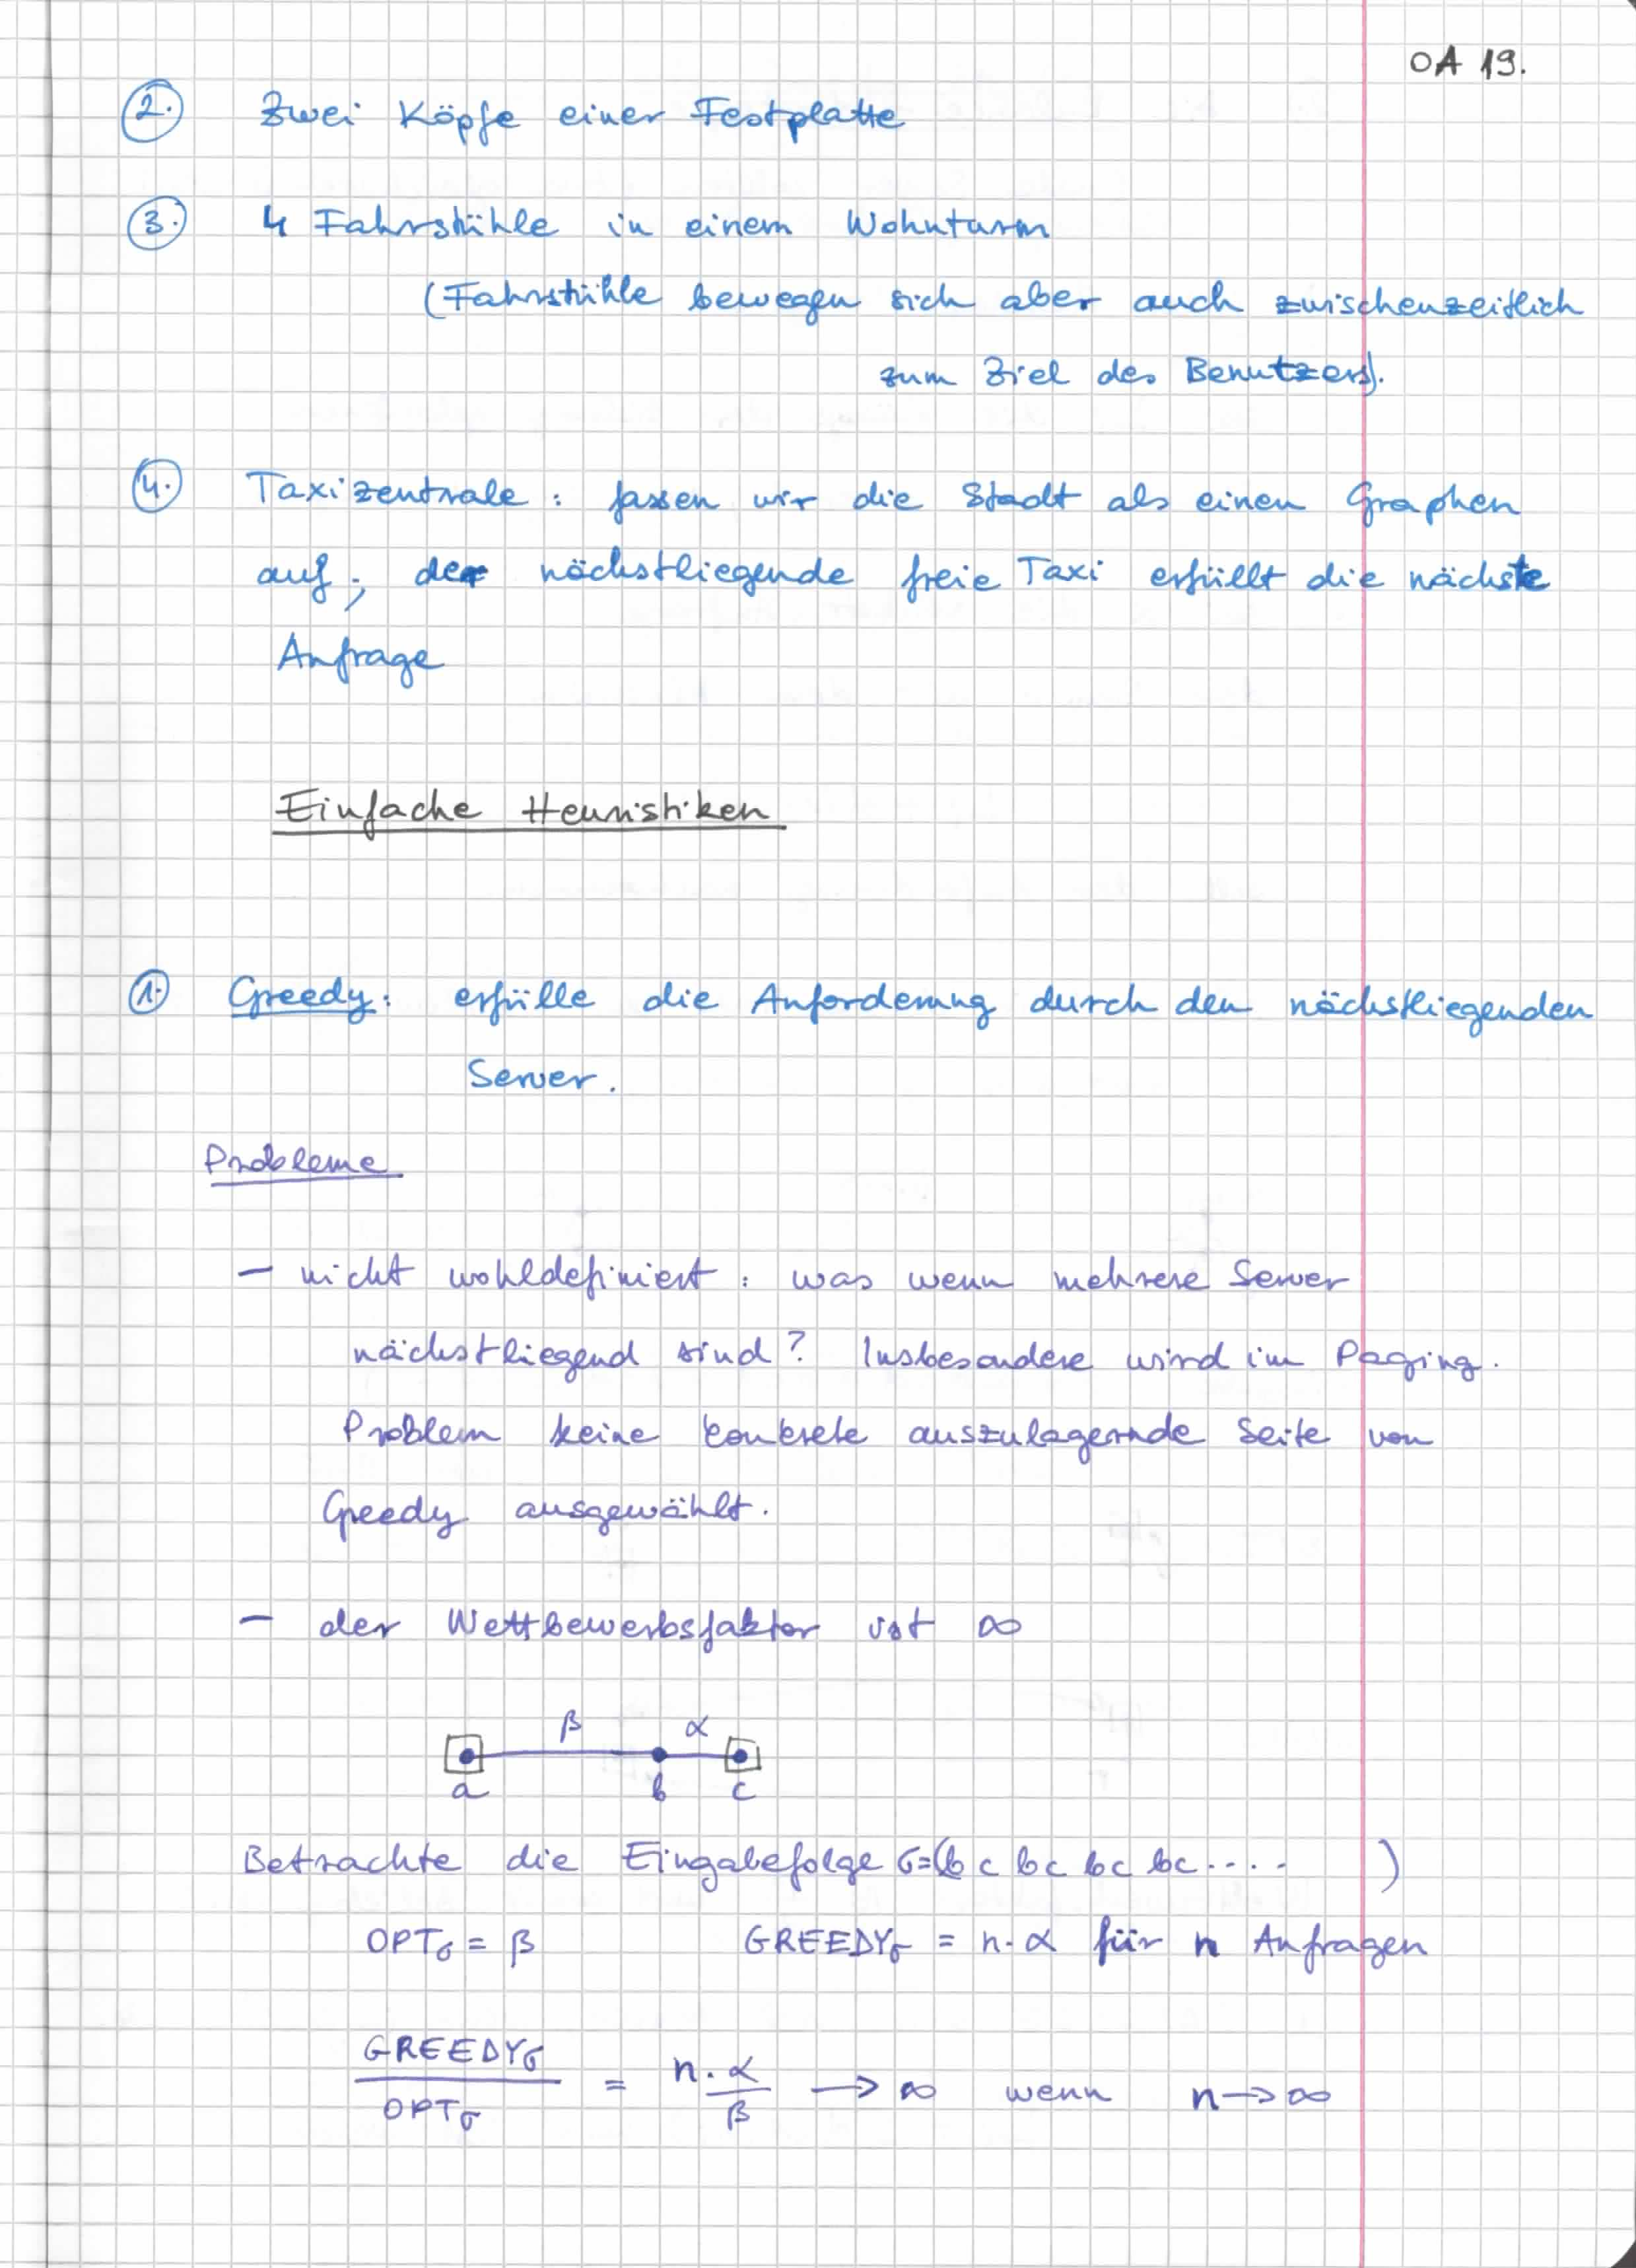 OA 19.
2. Zwei Köpfe einer Festplatte
3. 4 Fahrstühle in einem Wohnturm
(Fahrstühle bewegen sich aber auch zwischenzeitlich
zum Ziel des Benutzers).
4. Taxizentrale : fassen wir die Stadt als einen Graphen
auf; der nächstliegende freie Taxi erfüllt die nächste
Anfrage
Einfache Heuristiken
1. Greedy: erfülle die Anforderung durch den nächstliegenden
Server.
Probleme
– nicht wohldefiniert : was wenn mehrere Server
nächstliegend sind? Insbesondere wird im Paging-
Problem keine konkrete auszulagernde Seite von
Greedy ausgewählt.
– der Wettbewerbsfaktor ist ∞
β α
a b c
Betrachte die Eingabefolge σ=(b c bc bc bc .... )
OPTσ = β GREEDYσ = n·α für n Anfragen
GREEDYσ / OPTσ = n·α / β → ∞ wenn n → ∞